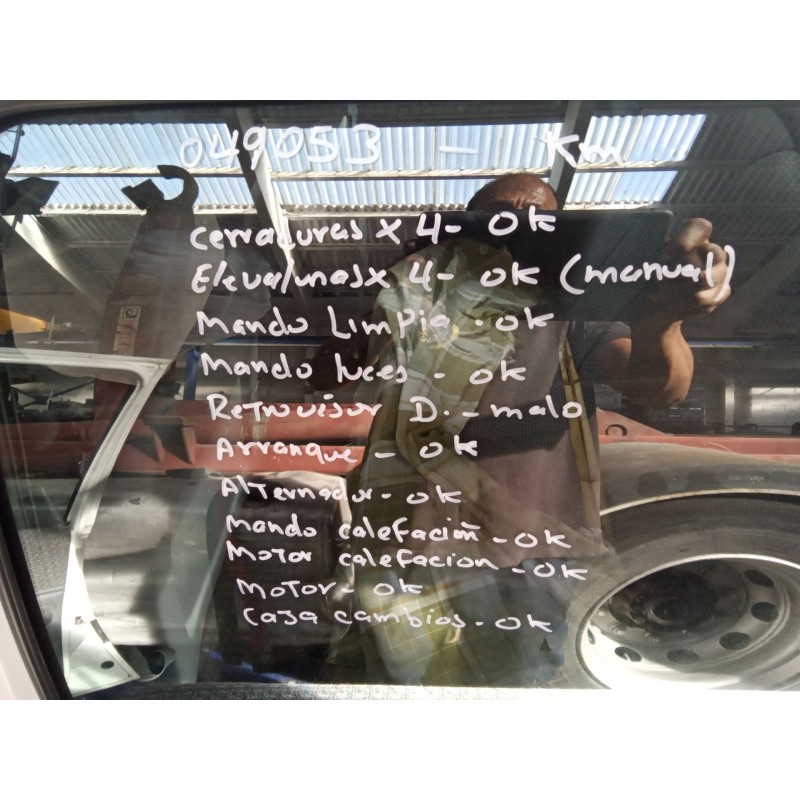 049053 - Km
Cerraduras x 4- Ok
Elevalunas x 4- ok (manual)
Mando Limpia - ok
Mando luces - ok
Retrovisor D. - malo
Arranque - ok
Alternador - ok
Mando calefación - ok
Motor calefacion - ok
Motor - ok
Caja cambios - ok